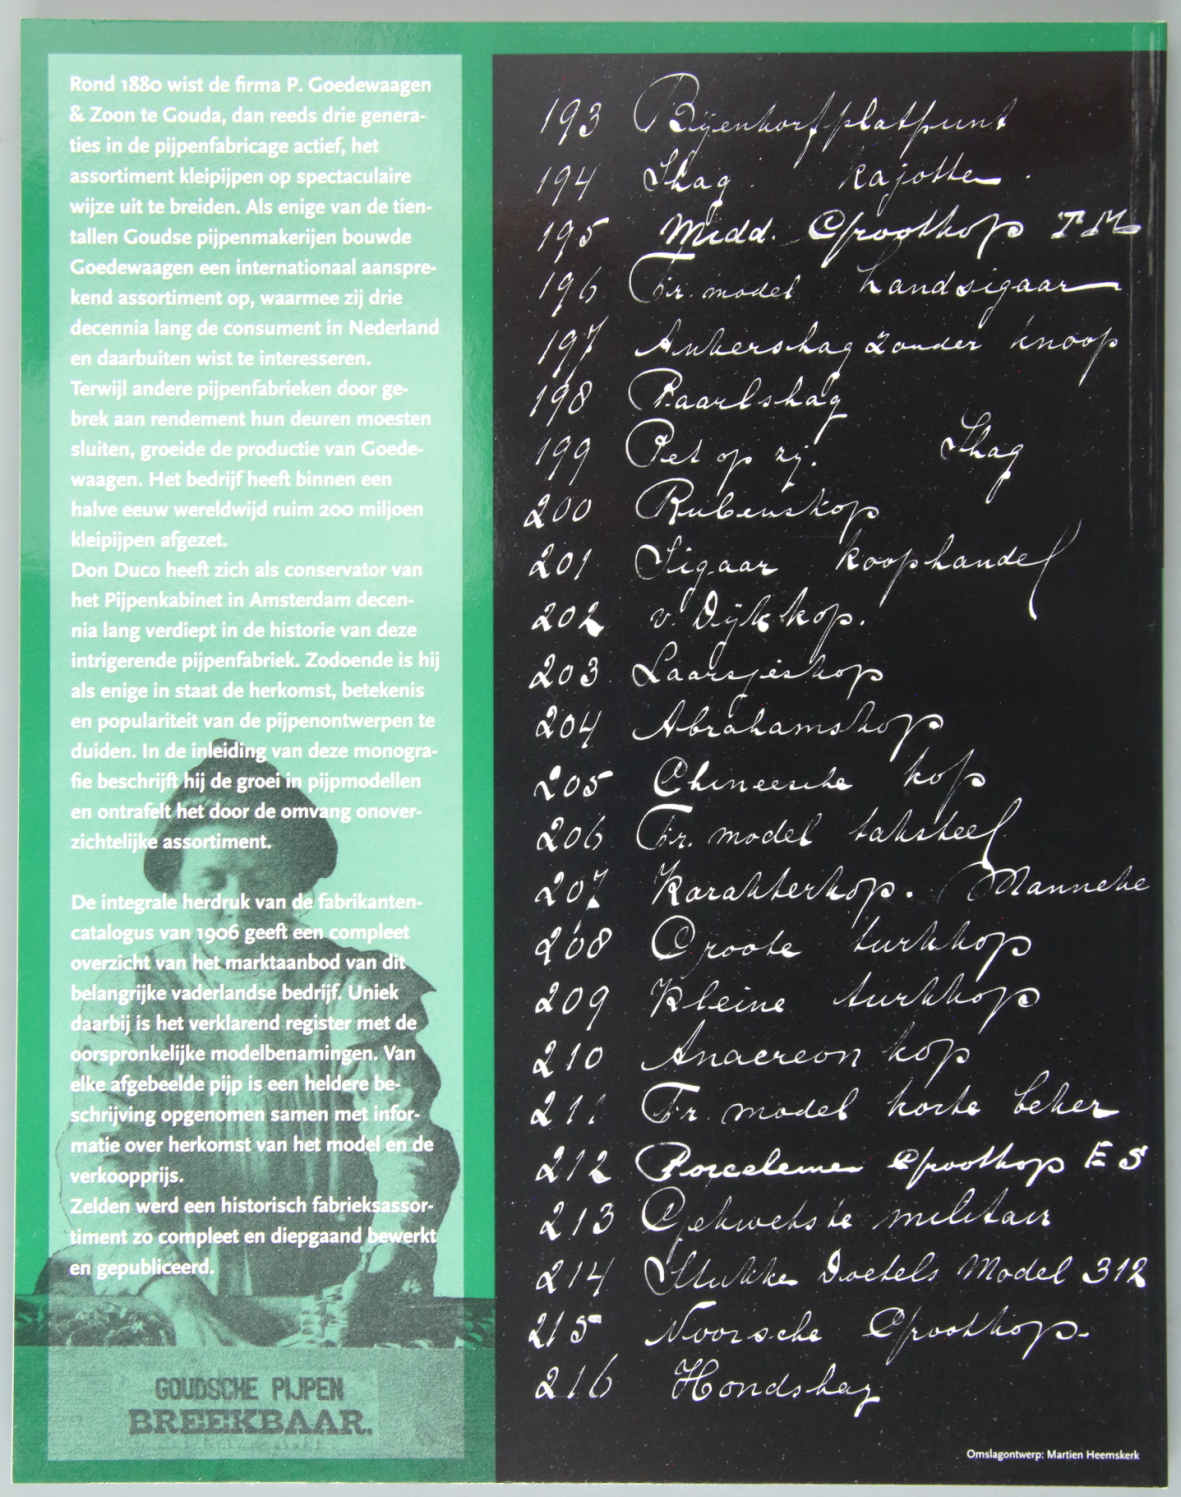 Rond 1880 wist de firma P. Goedewaagen
& Zoon te Gouda, dan reeds drie genera-
ties in de pijpenfabricage actief, het
assortiment kleipijpen op spectaculaire
wijze uit te breiden. Als enige van de tien-
tallen Goudse pijpenmakerijen bouwde
Goedewaagen een internationaal aanspre-
kend assortiment op, waarmee zij drie
decennia lang de consument in Nederland
en daarbuiten wist te interesseren.
Terwijl andere pijpenfabrieken door ge-
brek aan rendement hun deuren moesten
sluiten, groeide de productie van Goede-
waagen. Het bedrijf heeft binnen een
halve eeuw wereldwijd ruim 200 miljoen
kleipijpen afgezet.
Don Duco heeft zich als conservator van
het Pijpenkabinet in Amsterdam decen-
nia lang verdiept in de historie van deze
intrigerende pijpenfabriek. Zodoende is hij
als enige in staat de herkomst, betekenis
en populariteit van de pijpenontwerpen te
duiden. In de inleiding van deze monogra-
fie beschrijft hij de groei in pijpmodellen
en ontrafelt het door de omvang onover-
zichtelijke assortiment.
De integrale herdruk van de fabrikanten-
catalogus van 1906 geeft een compleet
overzicht van het marktaanbod van dit
belangrijke vaderlandse bedrijf. Uniek
daarbij is het verklarend register met de
oorspronkelijke modelbenamingen. Van
elke afgebeelde pijp is een heldere be-
schrijving opgenomen samen met infor-
matie over herkomst van het model en de
verkoopprijs.
Zelden werd een historisch fabrieksassor-
timent zo compleet en diepgaand bewerkt
en gepubliceerd.
GOUDSCHE PIJPEN
BREEKBAAR.
193 Bijenkorf platpunt
194 Shag. Kajotte.
195 Midd. Groothop TM
196 Fr. model handsigaar
197 Ankershag zonder knoop
198 Paarlshag
199 Pet op zij. Shag
200 Rubenskop
201 Sigaar koophandel
202 v. Dijk kop.
203 Laarsjeskop
204 Abrahamskop
205 Chineesche kop
206 Fr. model taksteel
207 Karakterkop. Manneke
208 Groote turkkop
209 Kleine turkkop
210 Anacreon kop
211 Fr. model korte beker
212 Porceleine Groothop ES
213 Gekwetste militair
214 Stukke Doetels Model 312
215 Noorsche Groothop.
216 Hondshag
Omslagontwerp: Martien Heemskerk